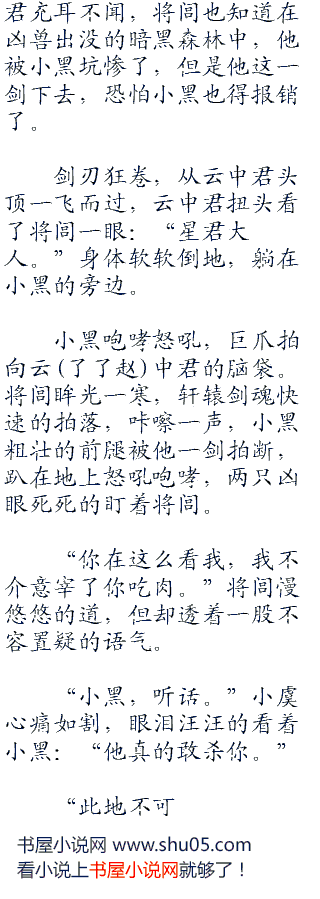 君充耳不闻，将闾也知道在
凶兽出没的暗黑森林中，他
被小黑坑惨了，但是他这一
剑下去，恐怕小黑也得报销
了。
剑刃狂卷，从云中君头
顶一飞而过，云中君扭头看
了将闾一眼：“星君大
人。”身体软软倒地，躺在
小黑的旁边。
小黑咆哮怒吼，巨爪拍
向云(了了赵)中君的脑袋。
将闾眸光一寒，轩辕剑魂快
速的拍落，咔嚓一声，小黑
粗壮的前腿被他一剑拍断，
趴在地上怒吼咆哮，两只凶
眼死死的盯着将闾。
“你在这么看我，我不
介意宰了你吃肉。”将闾慢
悠悠的道，但却透着一股不
容置疑的语气。
“小黑，听话。”小虞
心痛如割，眼泪汪汪的看着
小黑：“他真的敢杀你。”
“此地不可
书屋小说网 www.shu05.com
看小说上书屋小说网就够了！